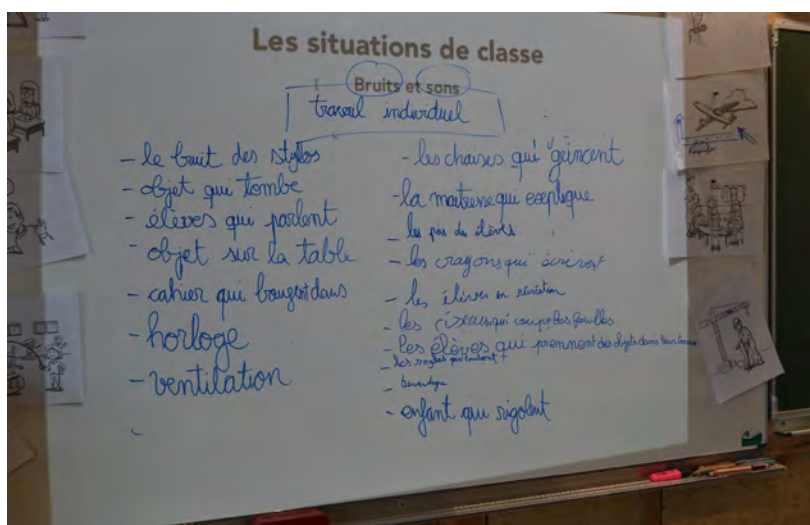 Les situations de classe
Bruits et sons
travail individuel
- le bruit des stylos
- objet qui tombe
- élèves qui parlent
- objet sur la table
- cahier qui bougent dans
- horloge
- ventilation
- les chaises qui géincent
- la maitresse qui explique
- les pas des élèves
- les crayons qui écrivent
- les élèves en récréation
- les ciseaux qui coupe les feuilles
- les élèves qui prennent des objets dans leurs
- les règles qui tombent
-
- enfant qui rigolent